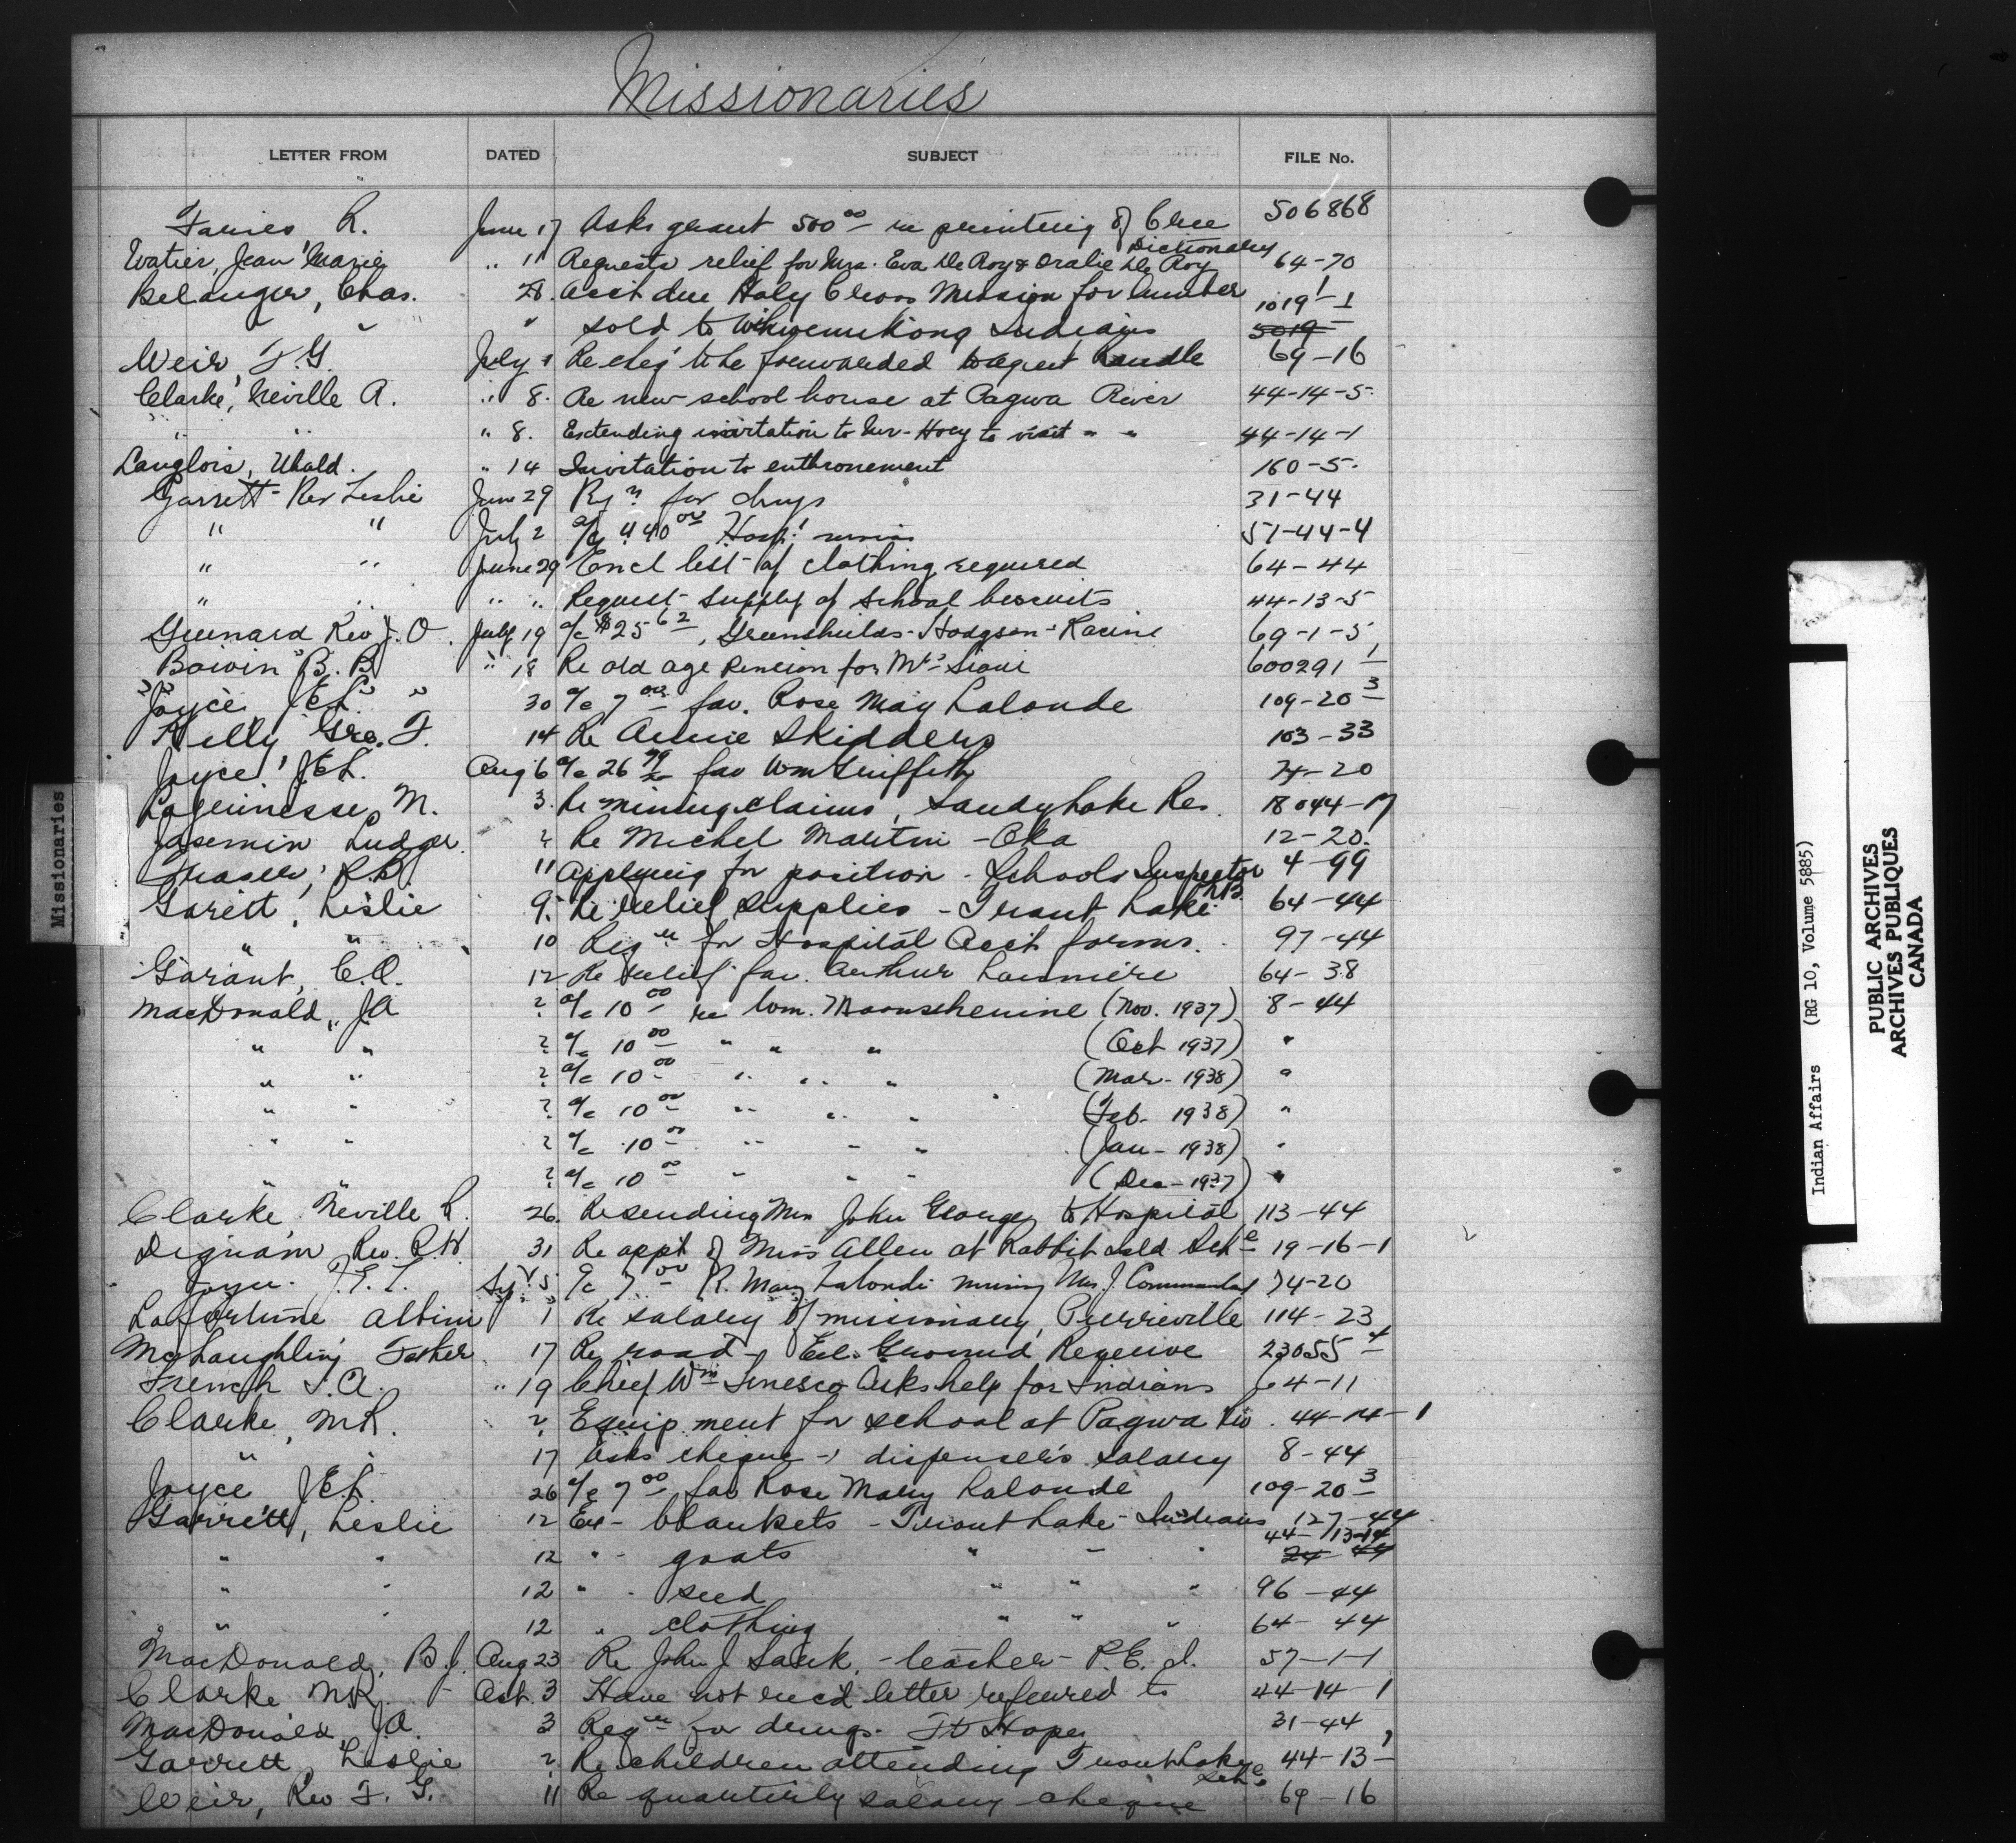 Missionaries
LETTER FROM DATED SUBJECT FILE No.
Faries, R. June 17 Asks grant 500⁰⁰ re printing of Cree Dictionary 506868
Watier, Jean Marie " 11 Requests relief for Mrs. Eva De Roy & Oralie De Roy 64-70
Belanger, Chas. 28. Acct due Holy Cross Mission for lumber 1019-1
" sold to Wikwemikong Indians 5019
Weir, F.G. July 1 Re chq to be forwarded to agent Randle 69-16
Clarke, Neville A. " 8. Re new school house at Pagwa River 44-14-5
" " " 8. Extending invitation to Mr. Hoey to visit " " 44-14-1
Langlois, Ubald. " 14 Invitation to enthronement 160-5.
Garrett Rev Leslie June 29 Rqn for drugs 31-44
" " July 2 a/c 440⁰⁰ Hosp! 57-44-4
" " June 29 Encl list of clothing required 64-44
" " " " Request supply of school biscuits 44-13-5
Guinard Rev J.O. July 19 a/c $25⁶², Greenshields-Hodgson-Racine 69-1-5
Boivin B. B " 18 Re old age pension for Mrs Sioui 600291-1
Joyce J.E.L. " 30 a/c 7⁰⁰ fav. Rose May Lalonde 109-20-3
Kelly, Geo. F. 14 Re Annie Skidders 103-33
Joyce, J.E.L. Aug 6 a/c 26 fav Wm Griffith 74-20
Lajeunesse, M. 3. Re mining claims, Sandy Lake Res. 18044-17
Jasemin Ludger. ? Re Michel Martin - Oka 12-20.
Fraser, R.B 11 Applying for position - Schools Inspector NB 4-99
Garett, Leslie 9. Re relief supplies - Trout Lake 64-44
" " 10 Reqn for Hospital Acct forms. 97-44
Garant, C.O. 12 Re relief fav. Arthur 64-38
MacDonald, J.A ? a/c 10⁰⁰ re Wm. Moonshenine (Nov. 1937) 8-44
" " ? a/c 10⁰⁰ " " " (Oct 1937) "
" " ? a/c 10⁰⁰ " " " (Mar- 1938) "
" " ? a/c 10⁰⁰ " " " (Feb- 1938) "
" " ? a/c 10⁰⁰ " " " (Jan- 1938) "
" " ? a/c 10⁰⁰ " " " (Dec-1937) "
Clarke, Neville R. 26. Re sending Mrs John George to Hospital 113-44
Dignam Rev. R.W. 31 Re appt of Miss Allen at Rabbit Isld Schl 19-16-1
Joyce. J.E.L. Sep. 5 a/c 7⁰⁰ R. Mary Lalonde nursing Mrs. J. Commanda 74-20
Lafortune Albini 1 Re salary of missionary, Pierreville 114-23
McLaughlin, Father 17 Re road - Eel Ground Reserve 23055-4
French T.A. " 19 Chief Wm Asks help for Indians 64-11
Clarke, N.R. ? Equipment for school at Pagwa Riv. 44-14-1
" " 17 Asks cheque - dispenser's salary 8-44
Joyce J.E.L. 26 a/c 7⁰⁰ fav Rose Mary Lalonde 109-20-3
Garrett, Leslie 12 Re - blankets - Trout Lake - Indians 127-44
" " 12 " - goats " " " 44-13-14 24 44
" " 12 " - seed " " " 96-44
" " 12 " clothing " " " 64-44
MacDonald, B.J. Aug 23 Re John J Sark. - teacher - P.E.I. 57-1-1
Clarke N.R. Oct. 3 Have not rec'd letter referred to 44-14-1
MacDonald J.A. 3 Reqn for drugs. Ft Hope 31-44
Garrett, Leslie ? Re children attending Trout Lake Schl 44-13-1
Weir, Rev F. G. 11 Re quarterly salary cheque 69-16
Missionaries
Indian Affairs (RG 10, Volume 5885)
PUBLIC ARCHIVES
ARCHIVES PUBLIQUES
CANADA